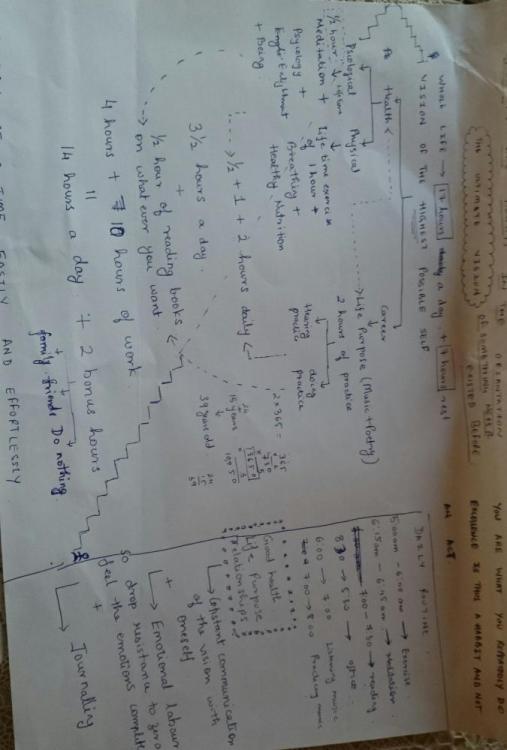 ORIENTATION
THE ULTIMATE VISION
OF SOMETHING NEVER
EXISTED BEFORE
YOU ARE WHAT YOU REPEATEDLY DO
EXCELLENCE IS THUS A HABIT AND NOT
AN ACT
WHOLE LIFE → 17 hours a day. + 7 hours rest
VISION OF THE HIGHEST POSSIBLE SELF
Health
Career
Physical
Life Purpose (Music + Poetry)
1/2 hour
Meditation +
+ Being
Life time exercise
of 1 hour +
Breathing +
Healthy Nutrition
2 hours of practice
Hearing practice
doing practice
→ 1/2 + 1 + 2 hours daily
3 1/2 hours a day.
+
1/2 hour of reading books
on whatever you want.
4 hours + 10 hours of work.
"
14 hours a day. + 2 bonus hours
family. friends Do nothing.
TIME EASTLY AND EFFORTLESSLY
2 x 365 =
365
730
15 years
39 years old
24
15
39
DAILY ROUTINE
5:00am - 6:00am → Exercise
6:15am - 6:45am → Meditation.
7:00 - 7:30 → reading
8:30 → 5:30 → office
6:00 → 7:00 Listening music
7:00 → 8:00 Practicing music
Good health
Life Purpose
Relationships
→ Constant communication
of the vision with
oneself
+
→ Emotional labour
to drop resistance to zero
feel the emotions
+
→ Journalling